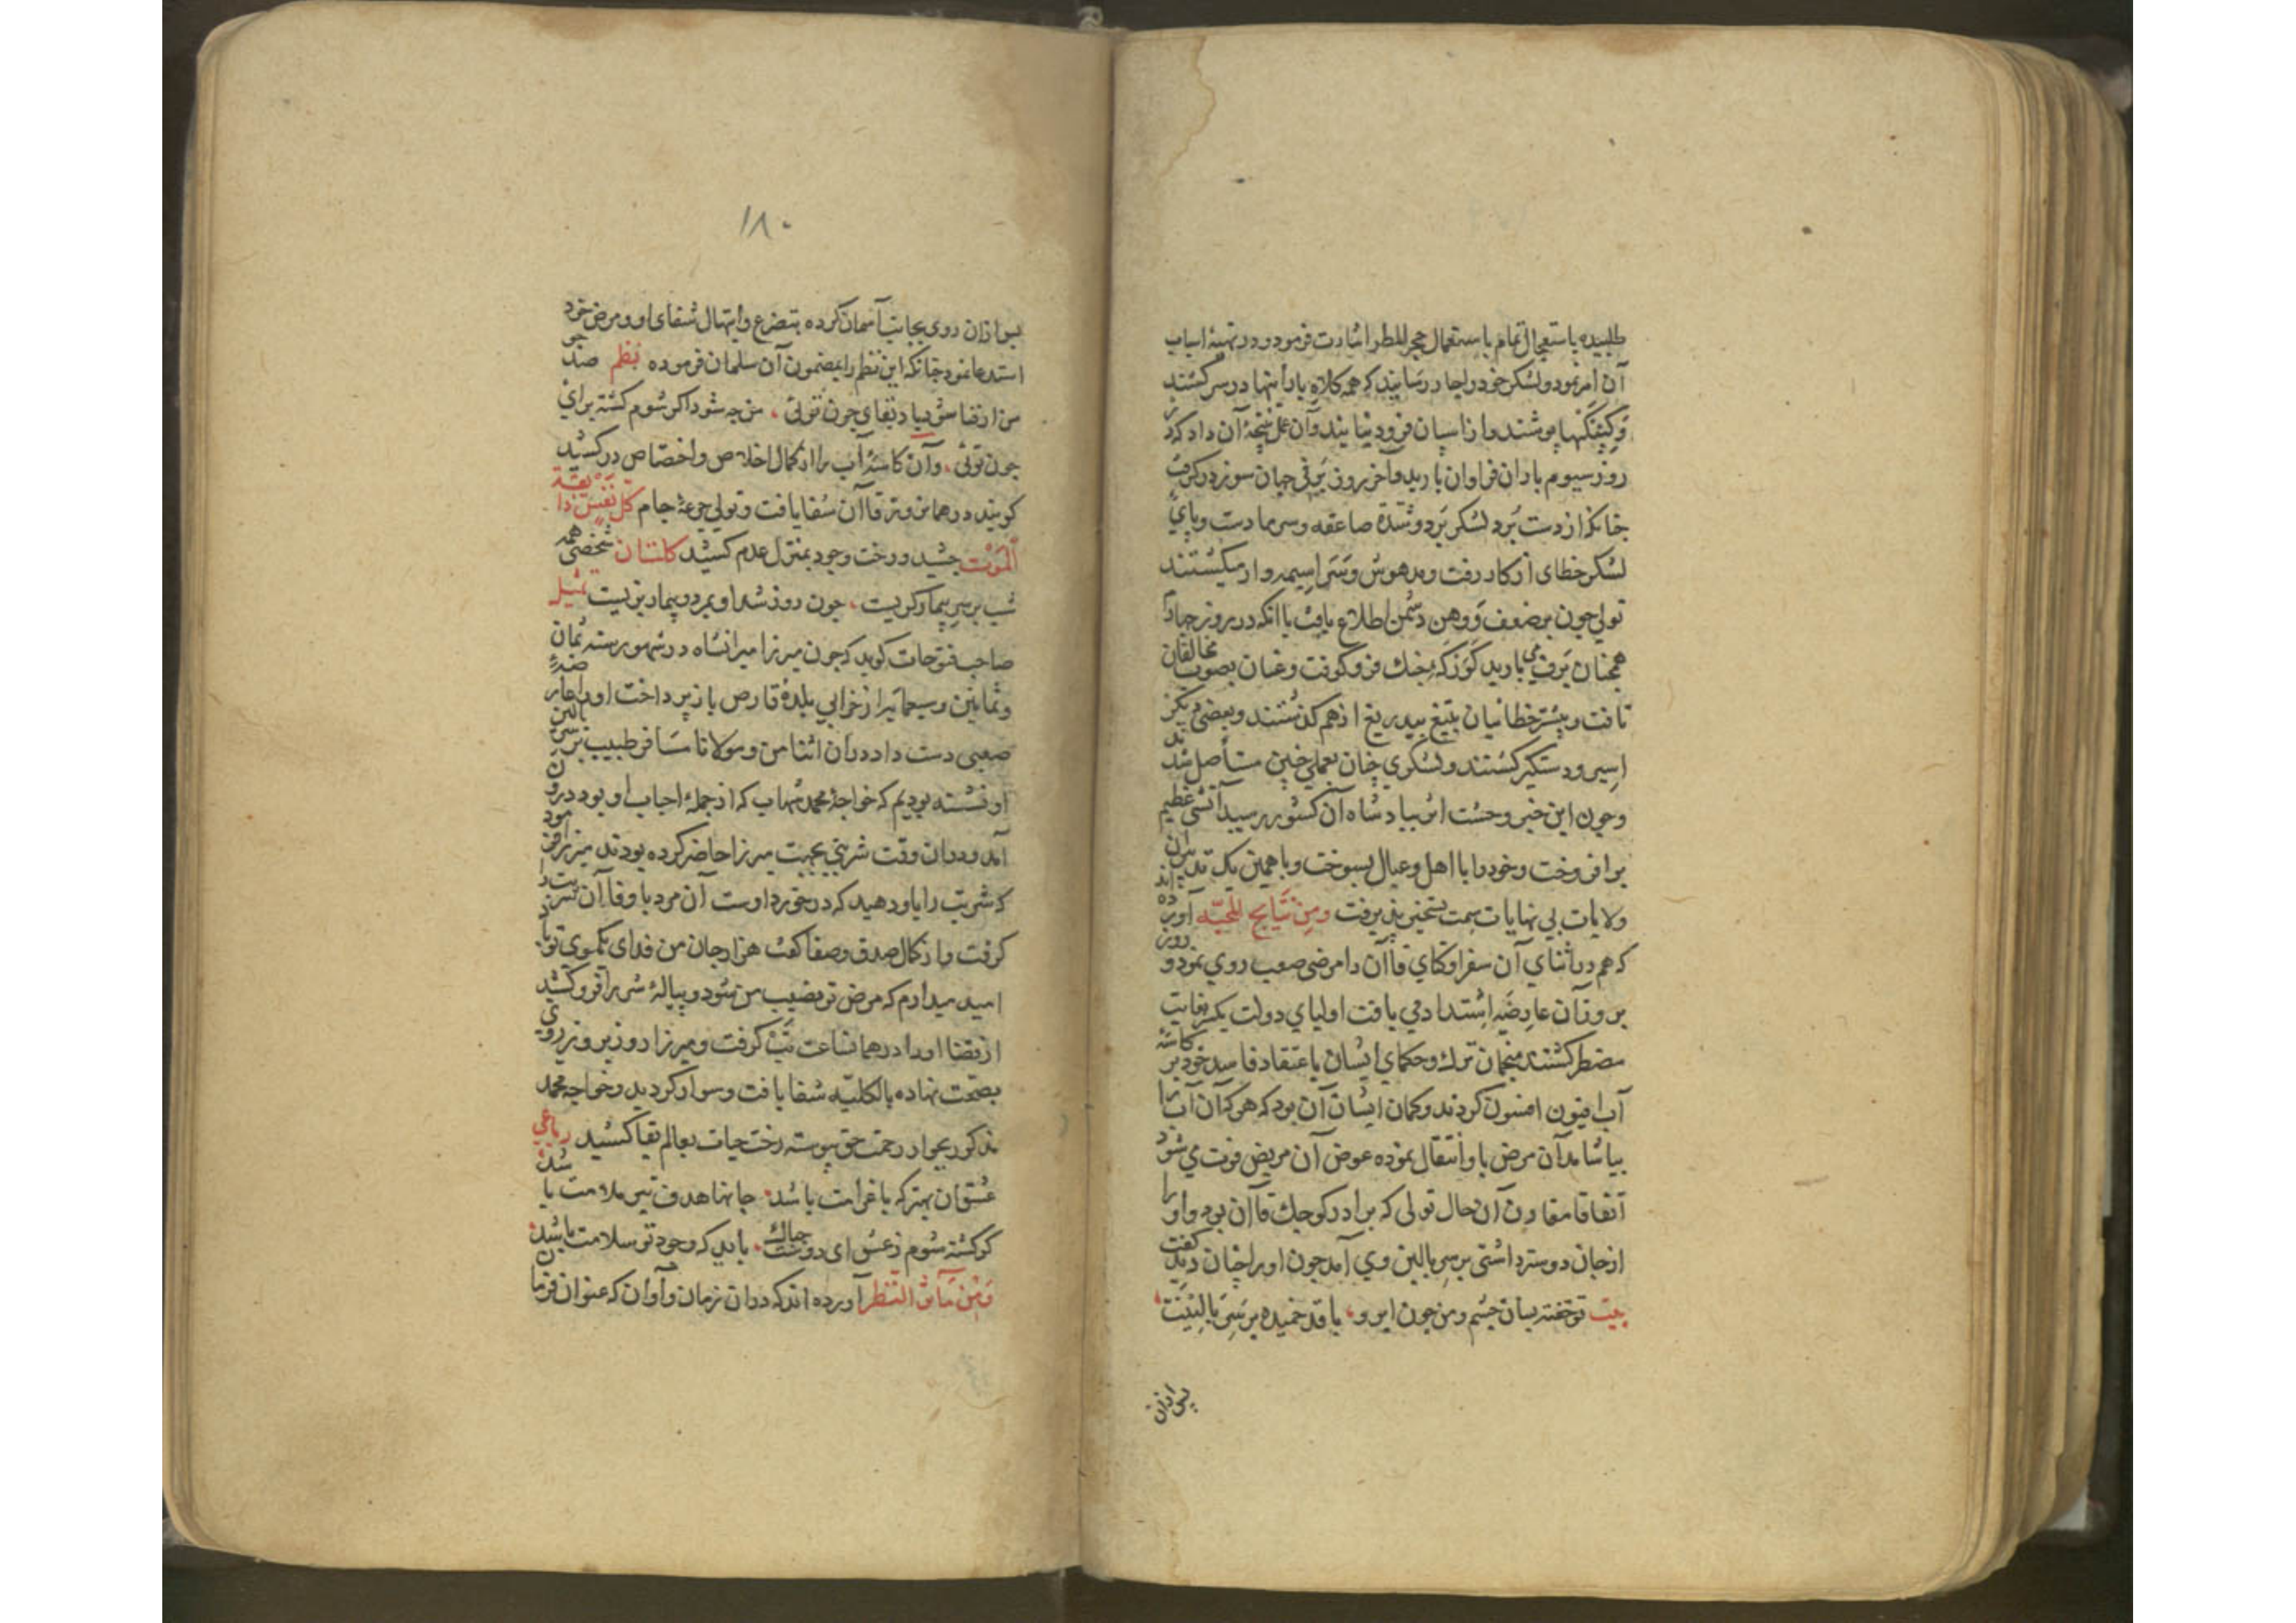 طلبیده باستعجال تمام باستعمال حجر المطر اشارت فرمود و در تهیۀ اسباب
آن امر نمود و لشکر خود را جار رسانیدند که همه کلاه بارانیها در سر کشند
و کپنکها پوشند و از اسبان فرود نیایند و آن عمل نتیجۀ آن داد که در
روز سیوم باران فراوان بارید و آخر روز برقی جهان سوز در گرفت
چنانکه از دست برد لشکر برد و شدة صاعقه و سرما دست و پای
لشکر خطای از کار رفت و مدهوش و سراسیمه وار میکشتند
تولی چون بر ضعف و وهن دشمن اطلاع یافت با آنکه در روز چهارم
همچنان برف می بارید کورکۀ جنك فرو کوفت و عنان بصوب مخالفان
تافت و بیشتر خطائیان بتیغ بیدریغ از هم کذشتند و بعضی دیکر
اسیر و دستکیر کشتند و لشکری چنان بعملی چنین مستأصل شدند
و چون این خبر وحشت اثر ببادشاه آن کشور رسید آتشی عظیم
بر افروخت و خود را با اهل و عیال بسوخت و با همین یک تدبیر آن
ولایات بی نهایات سمت تسخیر پذیرفت ومن نتایج المحبّه آورده اند
که هم در اثنای آن سفر اوکتای قاآن را مرضی صعب روی نمود و روز
بروز آن عارضه اشتداد می یافت اولیای دولت یکسر بغایت
مضطر کشتند منجمان ترك و حکمای ایشان باعتقاد فاسد خود بر کاسۀ
آب افیون افسون کردند و کمان ایشان آن بود که هر که آن آب را
بیاشامد آن مرض باو انتقال نموده عوض آن مریض فوت می شود
اتفاقا مقارن آن حال تولی که برادر کوچك قاآن بود و او را
از جان دوستر داشتی بر سر بالین وی آمد چون او را چنان دید گفت
بیت تو خفته بسان چشم و من چون ابرو، با قد خمیده بر سر بالینت
پس از آن
۱۸۰
پس از آن روی بجانب آسمان کرده بتضرع و ابتهال شفای او و مرض خود
استدعا نمود چنانکه این نظم را بمضمون آن سلمان فرموده نظم صد چو
من ار فنا شود باد بقای چون توئی، من چه شود اکر شوم کشته برای
چون توئی، وآن کاسۀ آب را از کمال اخلاص و اختصاص در کشید
کویند در همان روز قاآن شفا یافت و تولی جرعۀ جام کل نفس ذایقة
الموت چشید و رخت وجود بمنزل عدم کشید کلستان شخصی همه
شب بر سر بیمار کریست، چون روز شد او بمرد و بیمار بزیست تمثیل
صاحب فتوحات کوید که چون میرزا میرانشاه در شهور سنه ثمان
و ثمانین و سبعمایه از خرابی بلدۀ قارص باز پرداخت او را عارضۀ
صعبی دست داد در آن اثنا من و مولانا مسافر طبیب بر سر بالین
او نشسته بودیم که خواجه محمد شهاب که از جملۀ احباب او بود درون
آمد و در آن وقت شربتی بجهت میرزا حاضر کرده بودند میرزا فرمود
که شربت را باو دهید که در خورد اوست آن مرد با وفا آن شربت را
کرفت و از کمال صدق و صفا کفت هزار جان من فدای یکموی تو باد
امید میدارم که مرض تو نصیب من شود و پیالۀ شربرا فرو کشید
از قضا او را در همان ساعت تب کرفت و میرزا روز بروز روی
بصحت نهاده بالکلیه شفا یافت و سوار کردید و خواجه محمد
مذکور بجوار رحمت حق پیوسته رخت حیات بعالم بقا کشید رباعی
عشق آن بهتر که با غرامت باشد، جانها هدف تیر ملامت باشد،
کر کشته شوم ز عشق ای دوست چه باك، باید که وجود تو سلامت باشد،
ومن مآثر النظر آورده اند که در آن زمان و آوان که عنوان فرمان